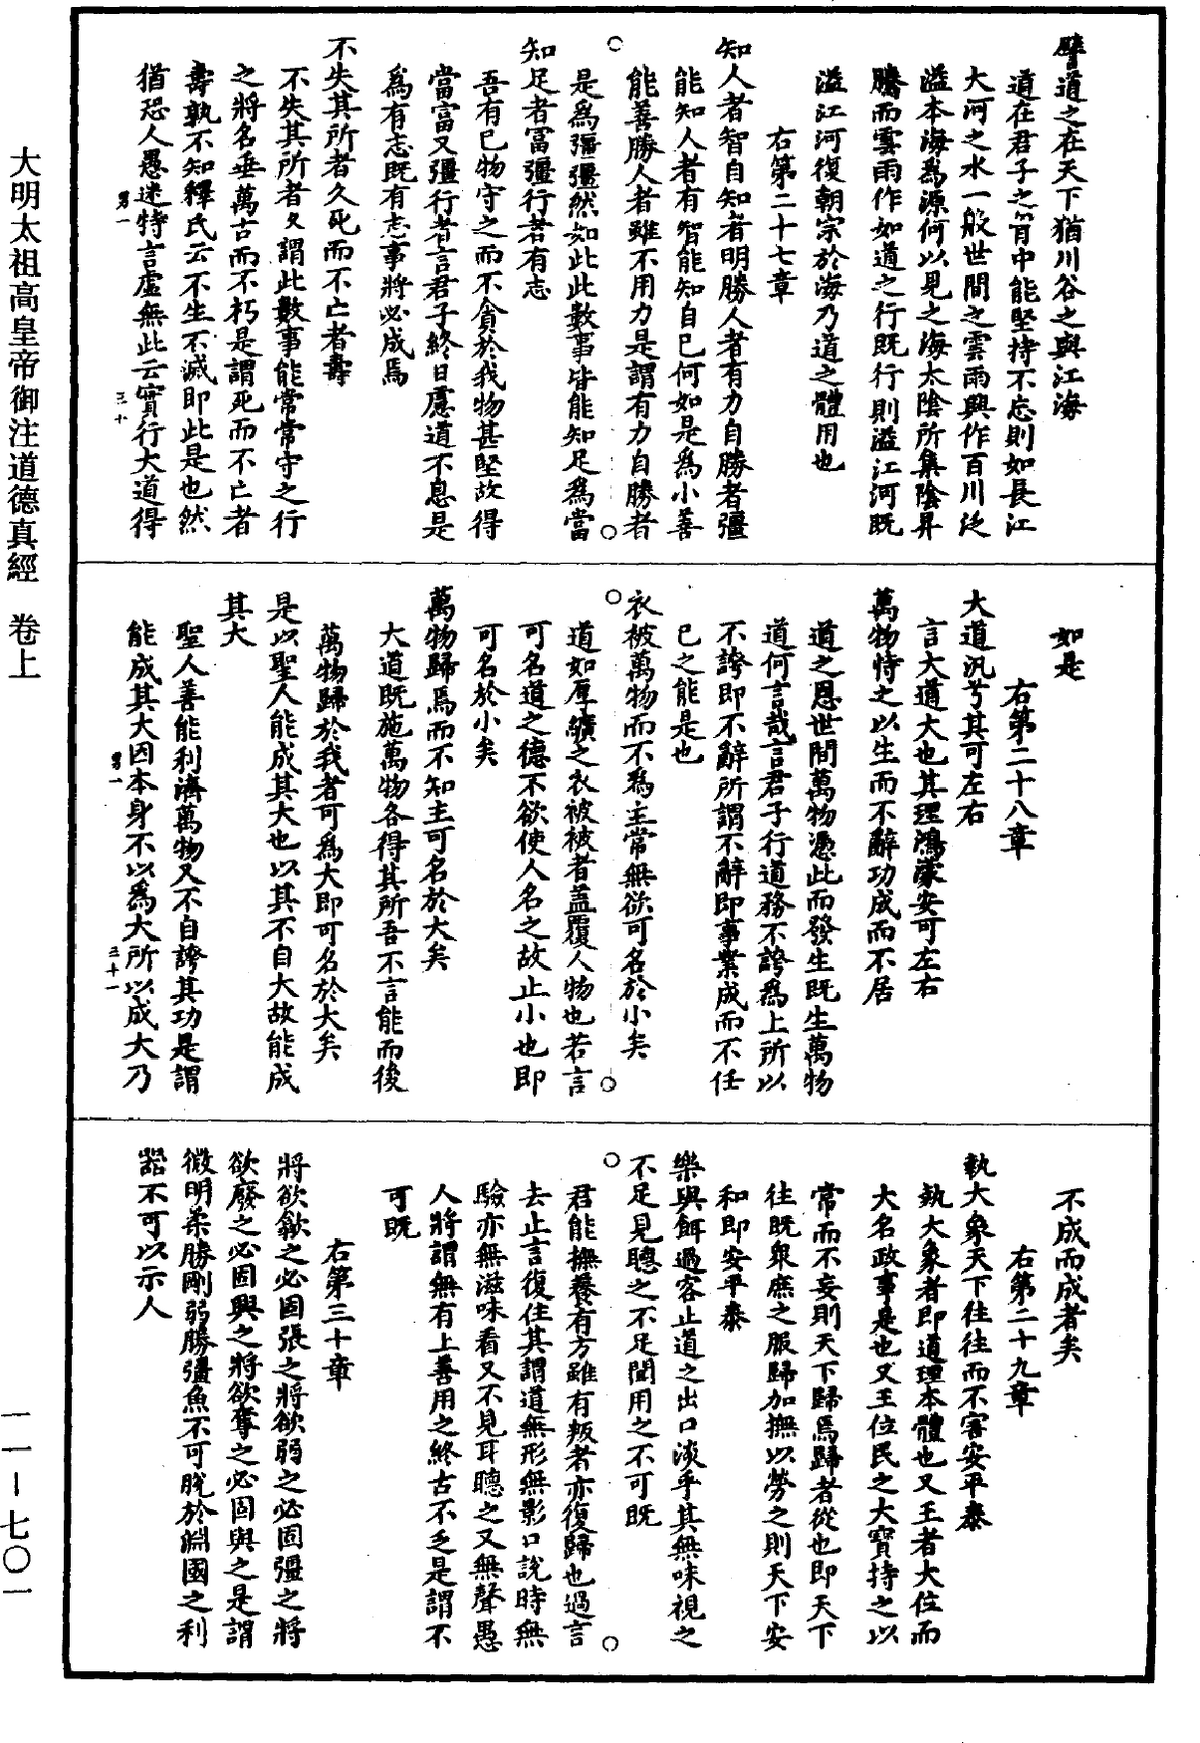 譬道之在天下猶川谷之與江海
道在君子之胷中能堅持不忘則如長江
大河之水一般世間之雲雨興作百川泛
溢本海為源何以見之海太陰所集陰昇
騰而雲雨作如道之行既行則溢江河既
溢江河復朝宗於海乃道之體用也
右第二十七章
知人者智自知者明勝人者有力自勝者彊
能知人者有智能知自己何如是為小善
能善勝人者雖不用力是謂有力自勝者
是為彊彊然如此此數事皆能知足為當
知足者富彊行者有志
吾有已物守之而不貪於我物甚堅故得
當富又彊行者言君子終日慮道不息是
為有志既有志事將必成焉
不失其所者久死而不亡者壽
不失其所者久謂此數事能常常守之行
之將名垂萬古而不朽是謂死而不亡者
壽孰不知釋氏云不生不滅即此是也然
猶恐人愚迷特言虛無此云實行大道得
男一
三十
如是
右第二十八章
大道汎兮其可左右
言大道大也其理鴻濛安可左右
萬物恃之以生而不辭功成而不居
道之恩世間萬物憑此而發生既生萬物
道何言哉言君子行道務不誇為上所以
不誇即不辭所謂不辭即事業成而不任
己之能是也
衣被萬物而不為主常無欲可名於小矣
道如厚纊之衣被被者蓋覆人物也若言
可名道之德不欲使人名之故止小也即
可名於小矣
萬物歸焉而不知主可名於大矣
大道既施萬物各得其所吾不言能而後
萬物歸於我者可為大即可名於大矣
是以聖人能成其大也以其不自大故能成
其大
聖人善能利濟萬物又不自誇其功是謂
能成其大因本身不以為大所以成大乃
男一
三十一
不成而成者矣
右第二十九章
執大象天下往往而不害安平泰
執大象者即道理本體也又王者大位而
大名政事是也又王位民之大寶持之以
常而不妄則天下歸焉歸者從也即天下
往既眾庶之服歸加撫以勞之則天下安
和即安平泰
樂與餌過客止道之出口淡乎其無味視之
不足見聽之不足聞用之不可既
君能撫養有方雖有叛者亦復歸也過言
去止言復住其謂道無形無影口說時無
驗亦無滋味看又不見耳聽之又無聲愚
人將謂無有上善用之終古不乏是謂不
可既
右第三十章
將欲歙之必固張之將欲弱之必固彊之將
欲廢之必固興之將欲奪之必固與之是謂
微明柔勝剛弱勝彊魚不可脫於淵國之利
器不可以示人
大明太祖高皇帝御注道德真經　卷上
一一－七〇一